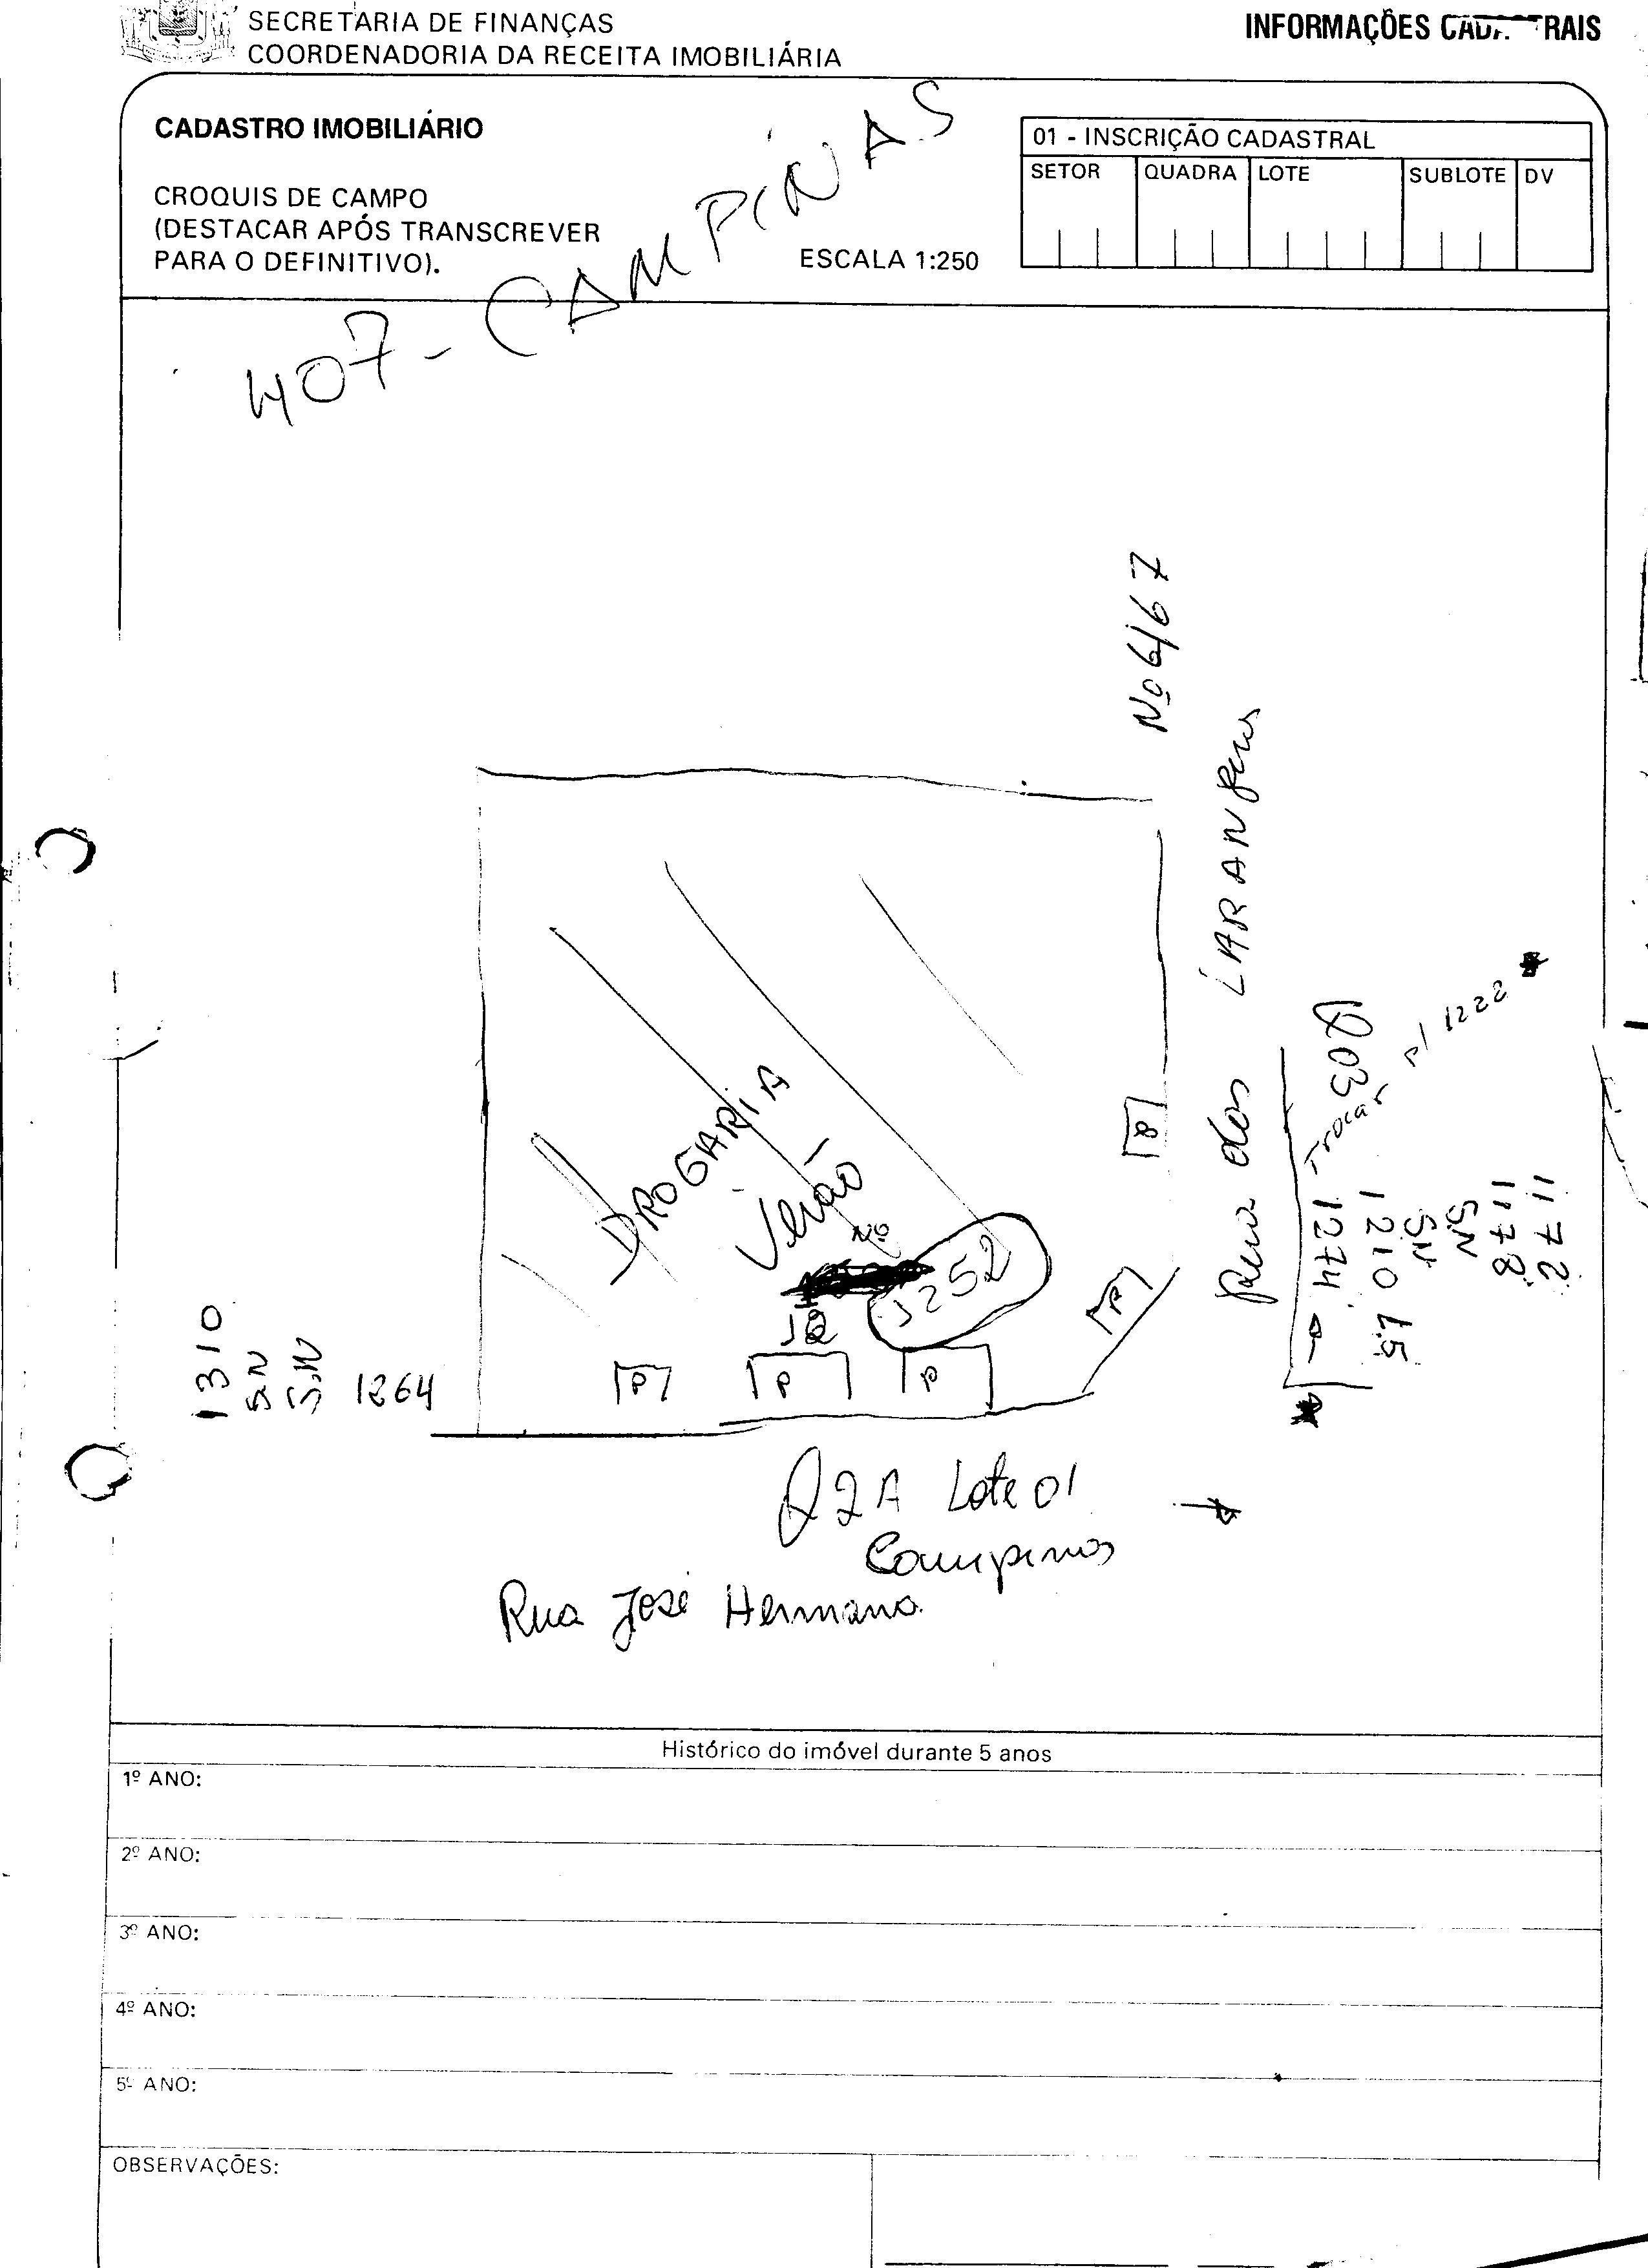 SECRETARIA DE FINANÇAS
COORDENADORIA DA RECEITA IMOBILIÁRIA
INFORMAÇÕES
CADASTRO IMOBILIÁRIO
CROQUIS DE CAMPO
(DESTACAR APÓS TRANSCREVER
PARA O DEFINITIVO).
ESCALA 1:250
01 - INSCRIÇÃO CADASTRAL
SETOR QUADRA LOTE SUBLOTE DV
407 - CAMPINAS
Nº 6/67
Rua dos LARANJeiras
DROGARIA
Verão
Nº
1252
P
P
P
P
P
1310
SN
S.N
1264
Q03
Trocar p/ 1222
1274
1210 L5
SN
SN
1178
1172
Q2A Lote 01
Campinas
Rua José Hermano
Histórico do imóvel durante 5 anos
1º ANO:
2º ANO:
3º ANO:
4º ANO:
5º ANO:
OBSERVAÇÕES: